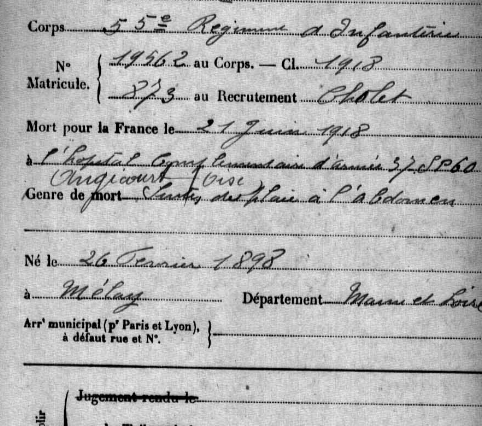 Corps 55e Regiment d Infanterie
No Matricule. { 19562 au Corps. — Cl. 1918
873 au Recrutement Cholet
Mort pour la France le 21 Juin 1918
à l'hopital Complementaire d'armée 37 SP 60
Angicourt Oise
Genre de mort Suites de plaie à l'abdomen
Né le 26 Fevrier 1898
à Mélay Département Maine et Loire
Arrt municipal (pr Paris et Lyon),
à défaut rue et No. }
Jugement rendu le